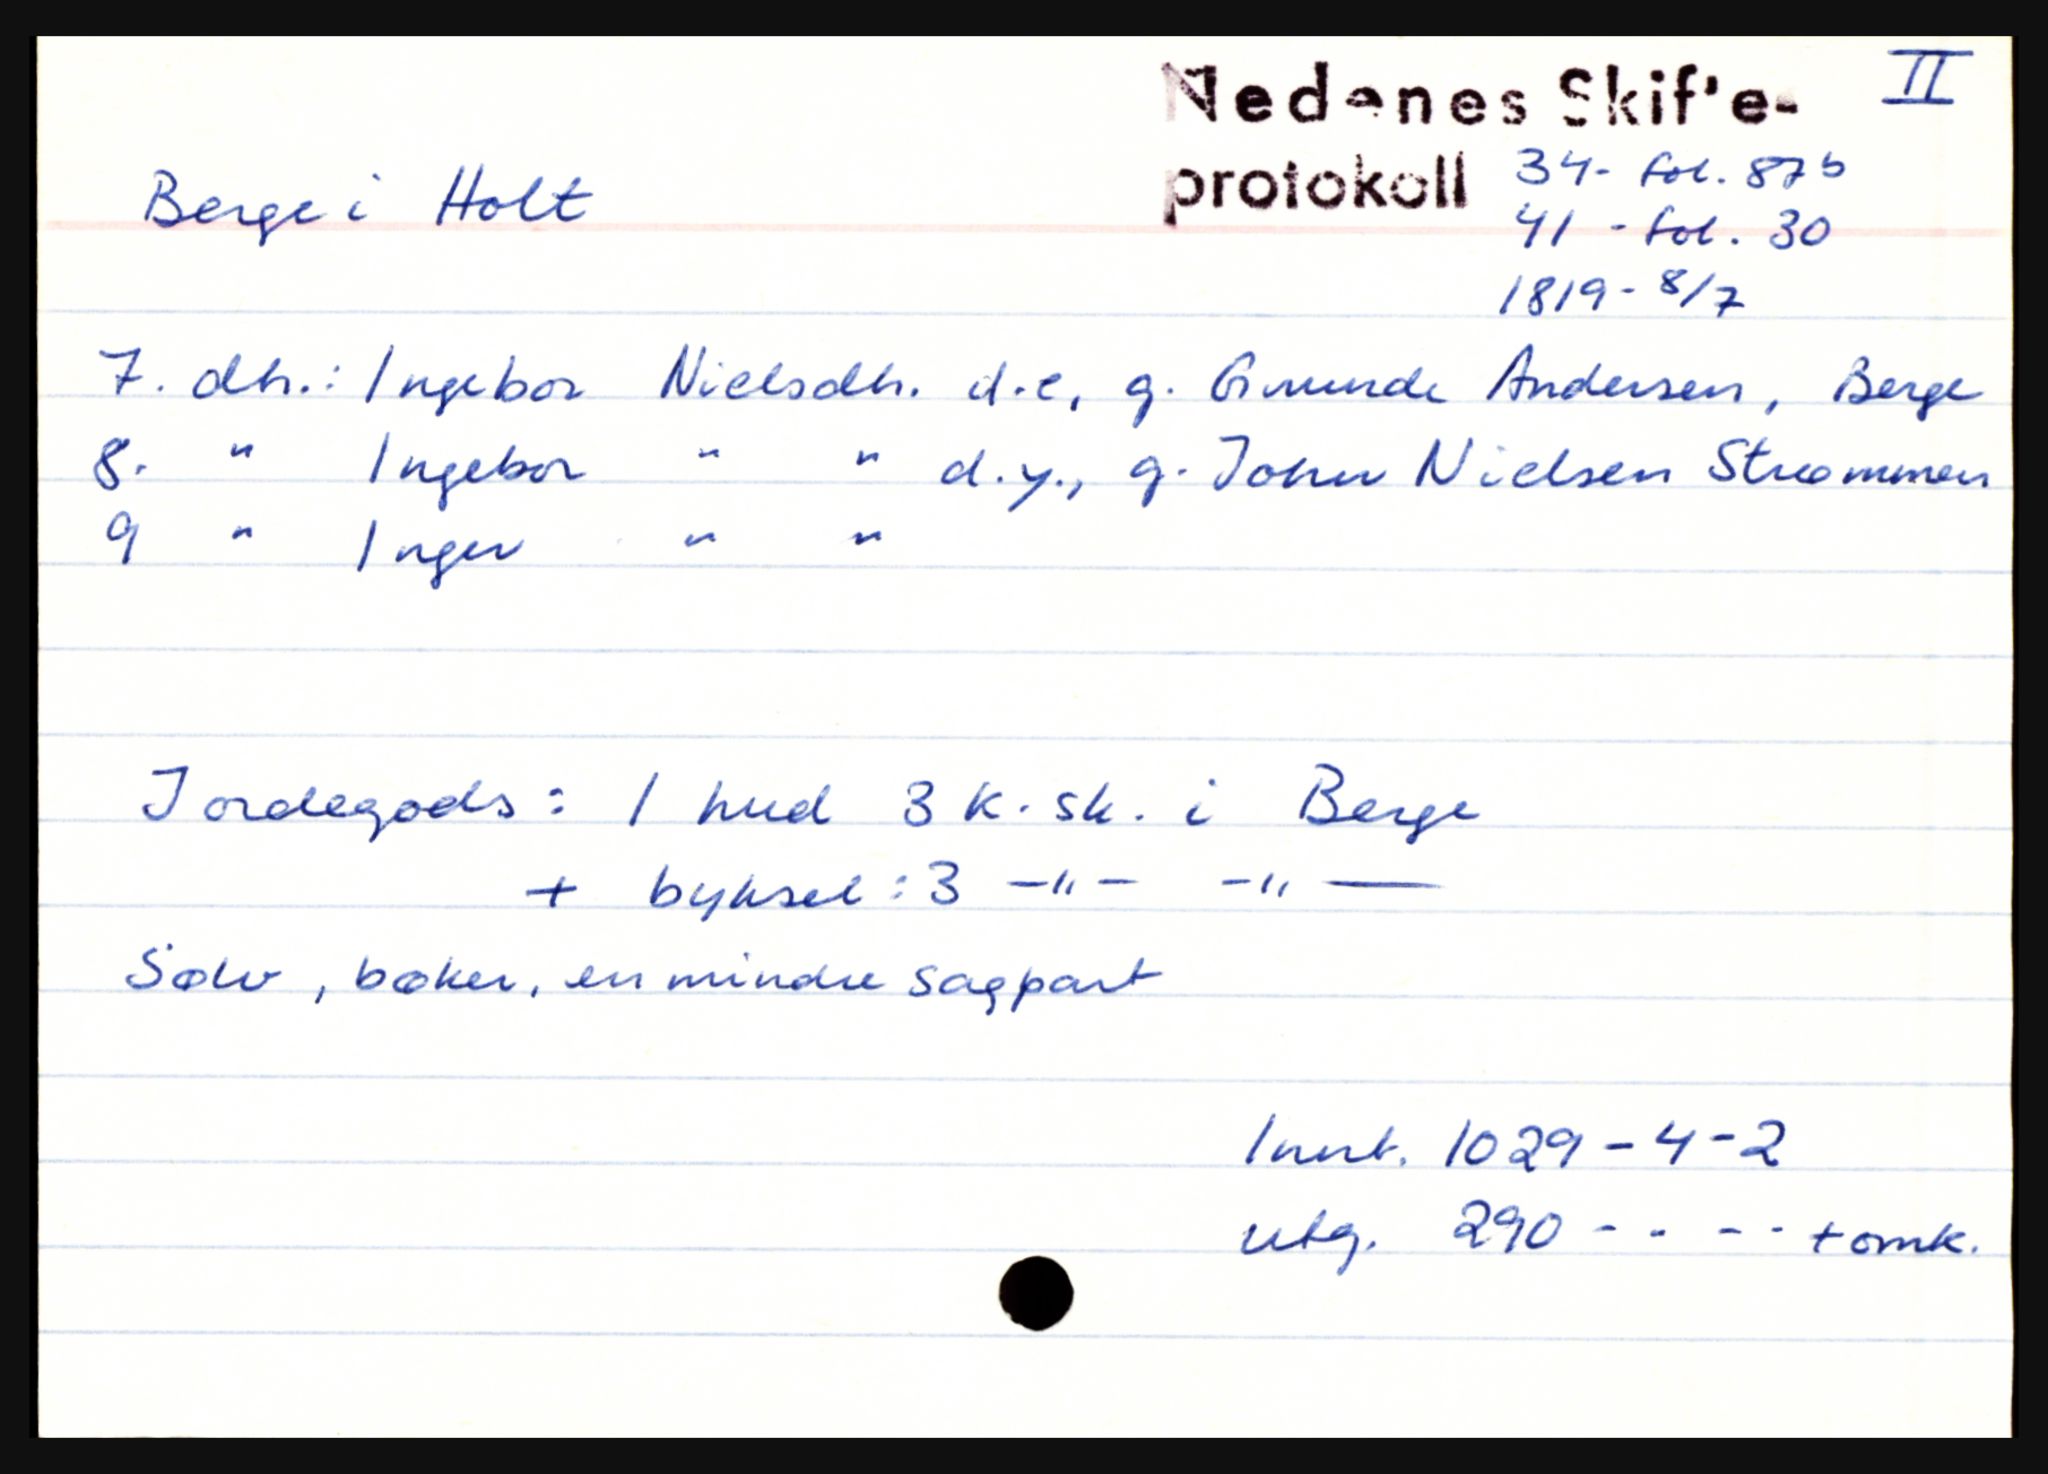 Nedenes Skifte- II
protokoll 34- fol. 87b
Berge i Holt
41 - fol. 30
1819 - 8/7
7. dh.: Ingebor Nielsdh. d.e, g. Gunde Andersen, Berge
8. " Ingebor " " d.y., g. John Nielsen Strømmen
9 " Inger " "
Jordegods: 1 hud 3 k. sk. i Berge
+ byksel: 3 -"- -"-
Sølv, bøker, en mindre sagpart
Innt. 1029 - 4 - 2
utg. 290 - - - - + omk.